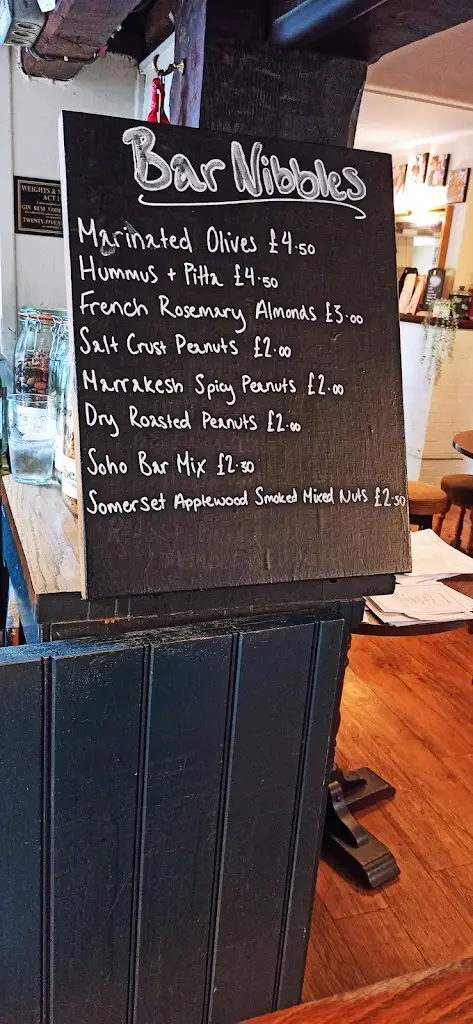 Bar Nibbles
Marinated Olives £4.50
Hummus + Pitta £4.50
French Rosemary Almonds £3.00
Salt Crust Peanuts £2.00
Marrakesh Spicy Peanuts £2.00
Dry Roasted Peanuts £2.00
Soho Bar Mix £2.50
Somerset Applewood Smoked Mixed Nuts £2.50
WEIGHTS &
ACT
GIN RUM